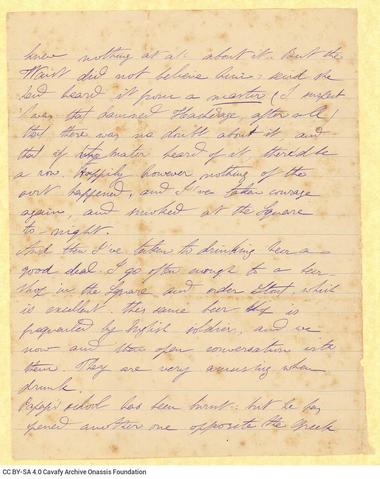 knew nothing at all about it. But the
did not believe him: said he
had heard it from a master (I suspect
that damned after all)
that there was no doubt about it and
that if mater heard of it there'd be
a row. Happily however nothing of the
sort happened, and I've taken courage
again, and smoked at the Square
to-night.
And then I've taken to drinking beer a
good deal. I go often enough to a beer-
shop in the Square and order stout, which
is excellent. This same beer is
frequented by English soldiers, and we
now and then open conversation with
them. They are very amusing when
drunk.
Papazi's school has been burnt: but he has
opened another one opposite the Greek
CC BY-SA 4.0 Cavafy Archive Onassis Foundation